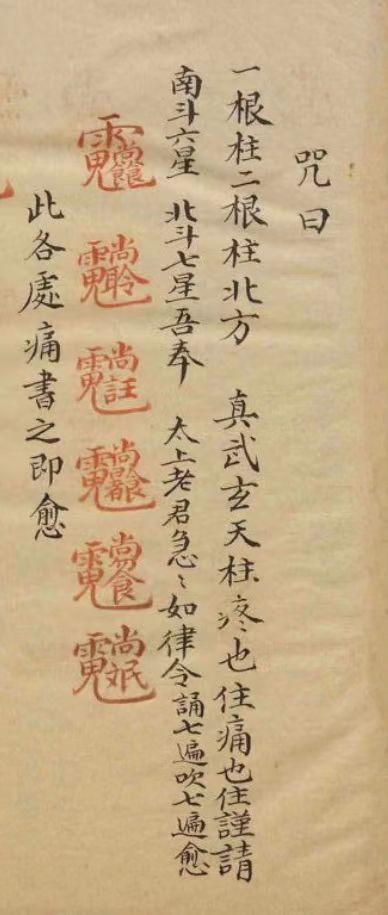 咒曰
一根柱二根柱北方　真武玄天柱疼也住痛也住謹請
南斗六星　北斗七星吾奉　太上老君急〻如律令誦七遍吹七遍愈
此各處痛書之即愈